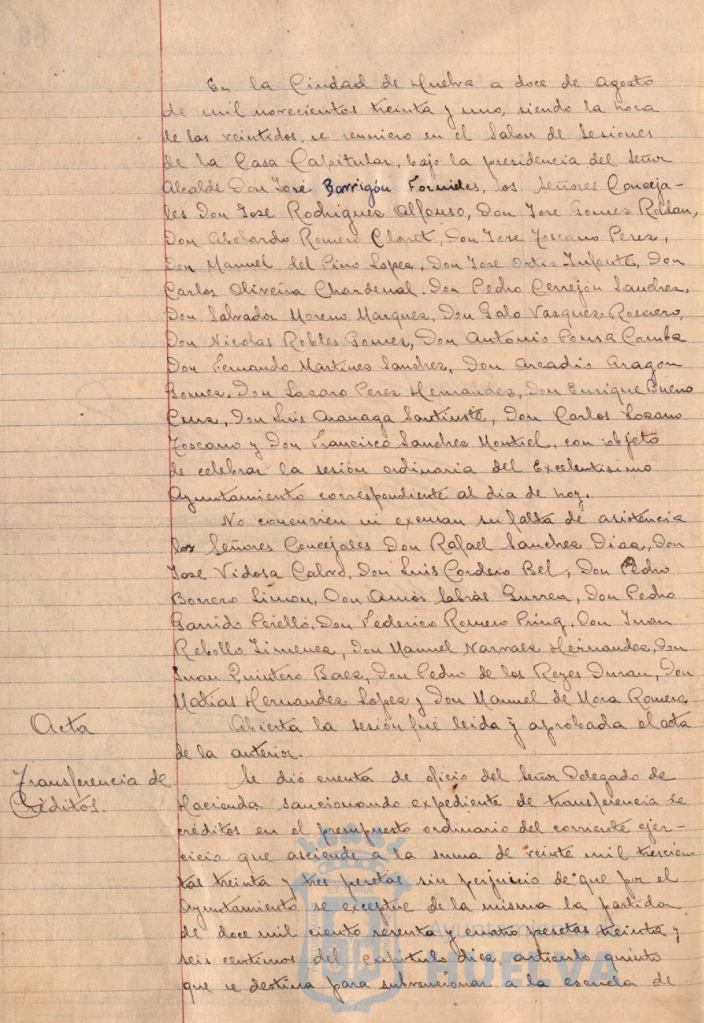 En la Ciudad de Huelva a doce de agosto
de mil novecientos treinta y uno, siendo la hora
de las veintidos, se reuniero en el Salon de Sesiones
de la Casa Capitular, bajo la presidencia del Señor
Alcalde Don José Barrigón Fornides, los Señores Conceja-
les Don Jose Rodriguez Alfonso, Don Jose Gomez Roldan,
Don Abelardo Romero Claret, Don Jose Toscano Perez,
Don Manuel del Pino Lopez, Don Jose Ortiz Infante, Don
Carlos Oliveira Chardenal, Don Pedro Cerrejón Sanchez,
Don Salvador Moreno Marquez, Don Galo Vazquez Romero,
Don Nicolas Robles Gomez, Don Antonio Pousa Camba
Don Fernando Martinez Sanchez, Don Arcadio Aragon
Gomez, Don Lazaro Perez Hernandez, Don Enrique Bueno
Cruz, Don Luis Don Carlos Lozano
Toscano y Don Francisco Sanchez Montiel, con objeto
de celebrar la sesión ordinaria del Excelentisimo
Ayuntamiento correspondiente al dia de hoy.
No concurrien ni excusan su falta de asistencia
los Señores Concejales Don Rafael Sanchez Diaz, Don
Jose Vidosa Calvo, Don Luis Cordero Bel, Don Pedro
Borrero Limon, Don Amós Sabrás Gurrea, Don Pedro
Garrido Perelló, Don Federico Romero Don Juan
Rebollo Jimenez, Don Manuel Narvaez Hernandez, Don
Juan Quintero Baez, Don Pedro de los Reyes Duran, Don
Matias Hernandez Lopez y Don Manuel de Mora Romero
Acta
Abierta la sesión fué leida y aprobada el acta
de la anterior.
Transferencia de
Créditos.
Se dió cuenta de oficio del Señor Delegado de
Hacienda sancionando expediente de transferencia de
créditos en el presupuesto ordinario del corriente ejer-
cicio que asciende a la suma de veinte mil trescien-
tas treinta y tres pesetas sin perjuicio de que por el
Ayuntamiento se exceptue de la misma la partida
de doce mil ciento sesenta y cuatro pesetas treinta y
seis centimos del capitulo diez, articulo quinto
que se destina para subvencionar a la escuela de
HUELVA